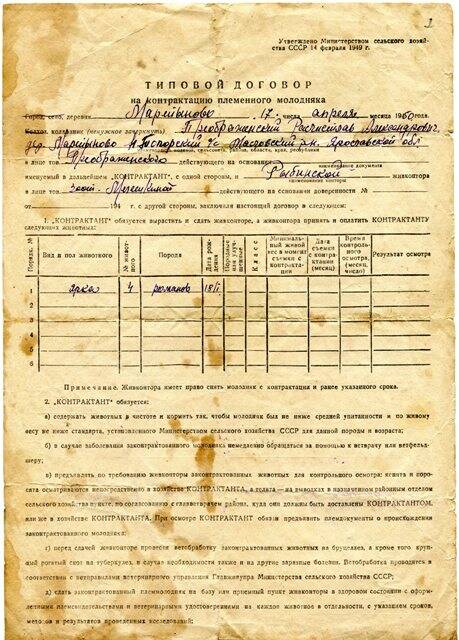 1
Утверждено Министерством сельского хозяй-
ства СССР 14 февраля 1949 г.
ТИПОВОЙ ДОГОВОР
на контрактацию племенного молодняка
Город, село, деревня Мартыново 17 числа апреля месяца 1960 года.
Колхоз, колхозник (ненужное зачеркнуть) Преображенский Александрович
дер. Мартыново Ярославской обл
район, области, края, республики
в лице тов. Преображенского действующего на основании
наименование документа
именуемый в дальнейшем „КОНТРАКТАНТ", с одной стороны, и Рыбинской живконтора
наименование конторы
в лице тов. действующего на основании доверенности №
от 194 г. с другой стороны, заключили настоящий договор в следующем:
1. „КОНТРАКТАНТ" обязуется вырастить и сдать живконторе, а живконтора принять и оплатить КОНТРАКТАНТУ
следующих животных:
Порядк. №
Вид и пол животного
№ животного
Порода
Дата рождения
Породные или улучшенные
Класс
Минимальный живой вес в момент съемки с контрактации
Дата съемки с контрактации (месяц)
Время контрольного осмотра, (месяц, число)
Результат осмотра
1 ярка 4 романов 18/I
2
3
4
5
6
Примечание. Живконтора имеет право снять молодняк с контрактации и ранее указанного срока.
2. „КОНТРАКТАНТ" обязуется:
а) содержать животных в чистоте и кормить так, чтобы молодняк был не ниже средней упитанности и по живому
весу не ниже стандарта, установленного Министерством сельского хозяйства СССР для данной породы и возраста;
б) в случае заболевания законтрактованного молодняка немедленно обращаться за помощью к ветврачу или ветфельд-
шеру;
в) предъявлять по требованию живконторы законтрактованных животных для контрольного осмотра: ягнята и поро-
сята осматриваются непосредственно в хозяйстве КОНТРАКТАНТА, а телята — на выводках в назначенном районным отделом
сельского хозяйства пункте, по согласованию с главветврачем района, куда они должны быть доставлены КОНТРАКТАНТОМ,
или же в хозяйстве КОНТРАКТАНТА. При осмотре КОНТРАКТАНТ обязан предъявить племдокументы о происхождении
законтрактованного молодняка;
г) перед сдачей живконторе провести ветобработку законтрактованных животных на бруцеллез, а кроме того круп-
ный рогатый скот на туберкулез, в случае необходимости также и на другие заразные болезни. Ветобработка проводится в
соответствии с ветправилами ветеринарного управления Главживупра Министерства сельского хозяйства СССР;
д) сдать законтрактованный племмолодняк на базу или приемный пункт живконторы в здоровом состоянии с офор-
мленными племсвидетельствами и ветеринарными удостоверениями на каждое животное в отдельности, с указанием сроков,
методов и результатов проведенных исследований;